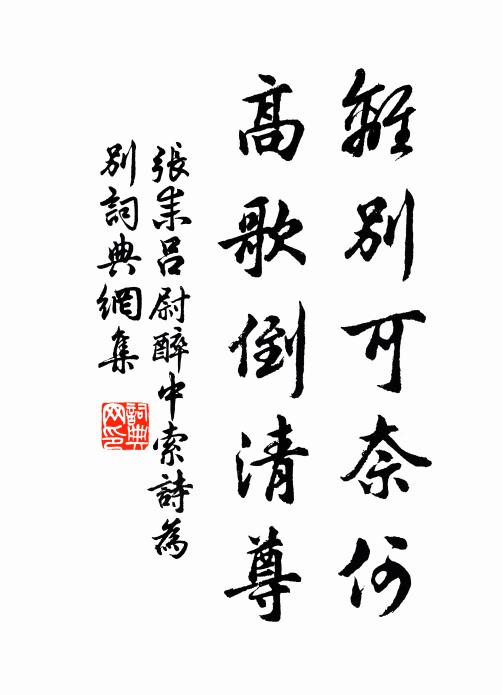 離別可奈何
高歌倒清尊
張朱呂尉醉中索詩為
別詞典網集
詞典
网印